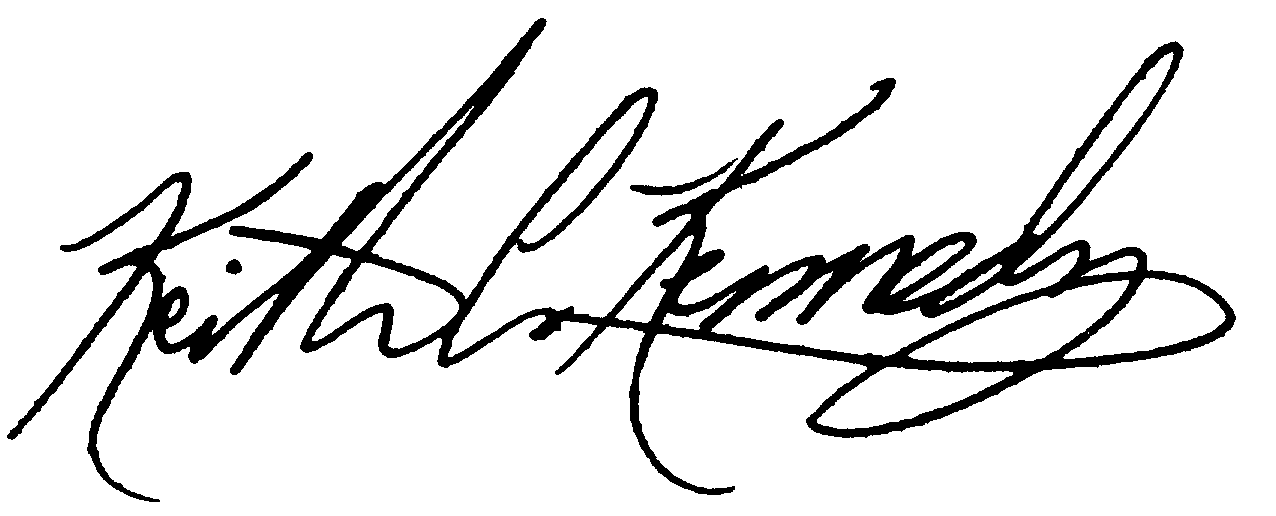 Keith L. Kennedy